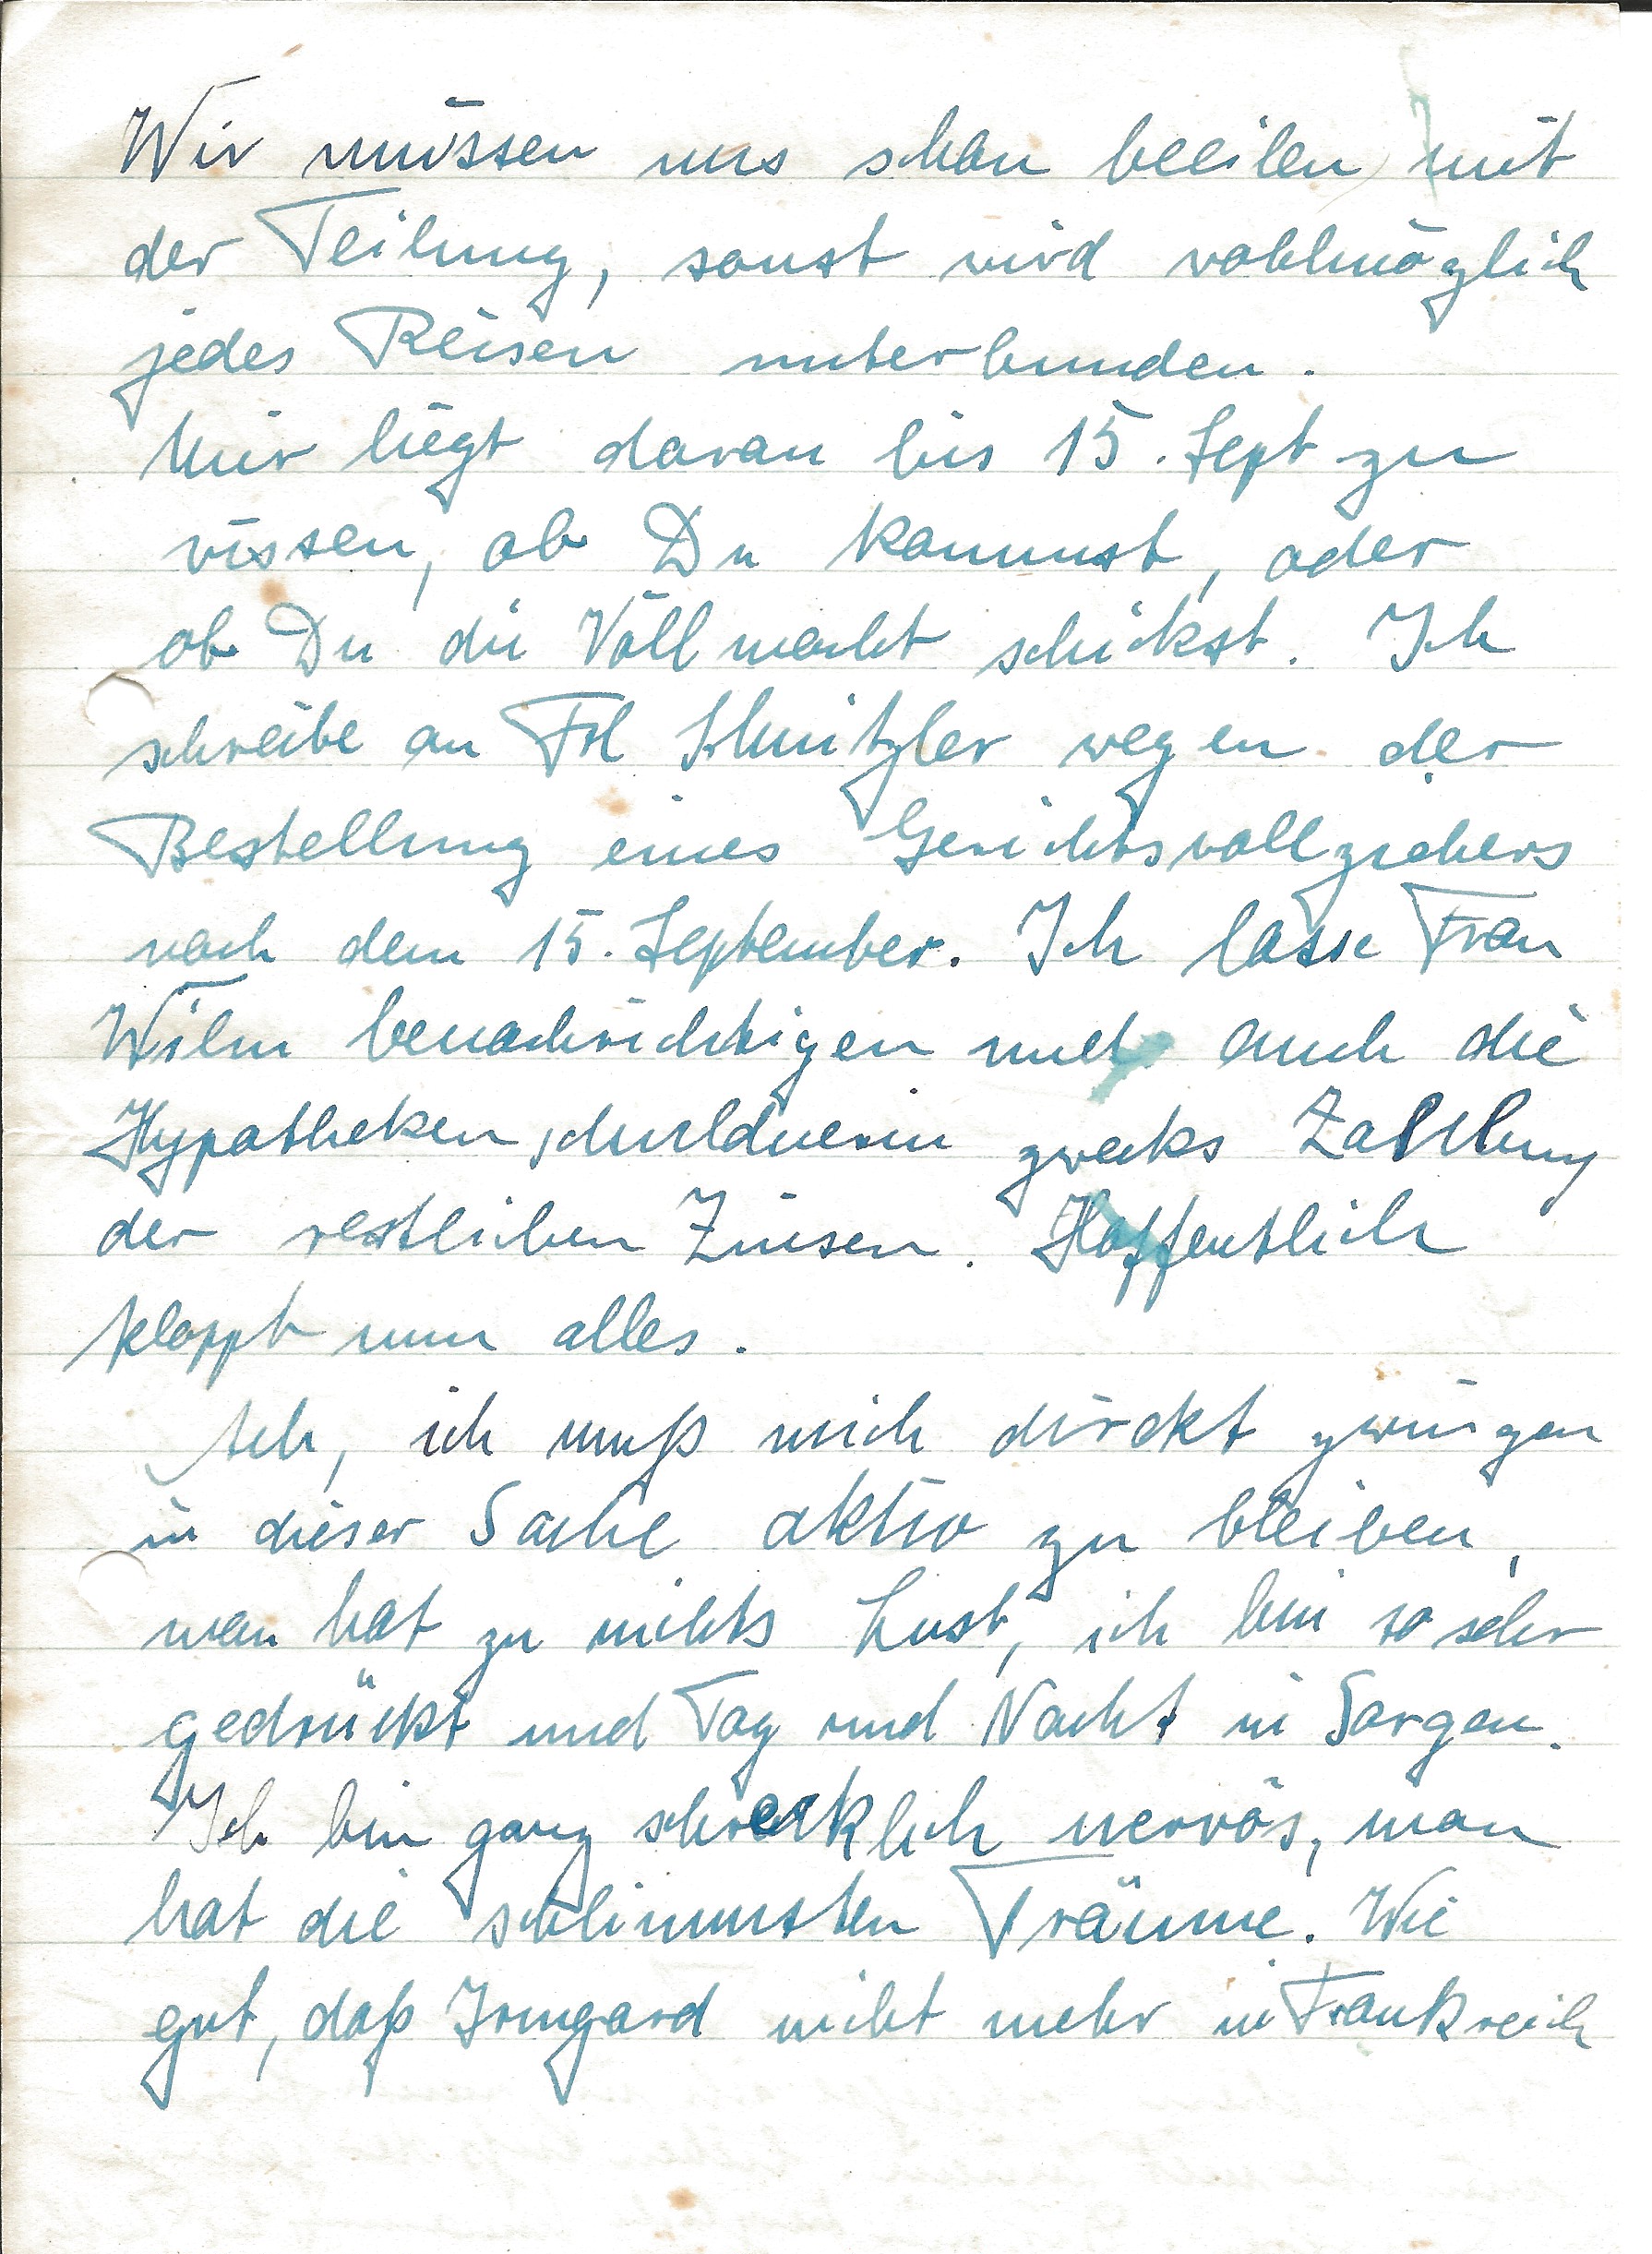 Wir müssen uns schon beeilen mit
der Teilung, sonst wird wohlmöglich
jedes Reisen unterbunden.
Mir liegt daran bis 15. Sept zu
wissen, ob Du kommst, oder
ob Du die Vollmacht schickst. Ich
schreibe an Frl Schnitzler wegen der
Bestellung eines Gerichtsvollziehers
nach dem 15. September. Ich lasse Frau
Wilm benachrichtigen und auch die
Hypothekenschuldnerin zwecks Zahlung
der restlichen Zinsen. Hoffentlich
kloppt nun alles.
Ach, ich muß mich direkt zwingen
in dieser Sache aktiv zu bleiben,
man hat zu nichts Lust, ich bin so sehr
gedrückt und Tag und Nacht in Sorgen.
Ich bin ganz schrecklich nervös, man
hat die schlimmsten Träume. Wie
gut, daß Irmgard nicht mehr in Frankreich